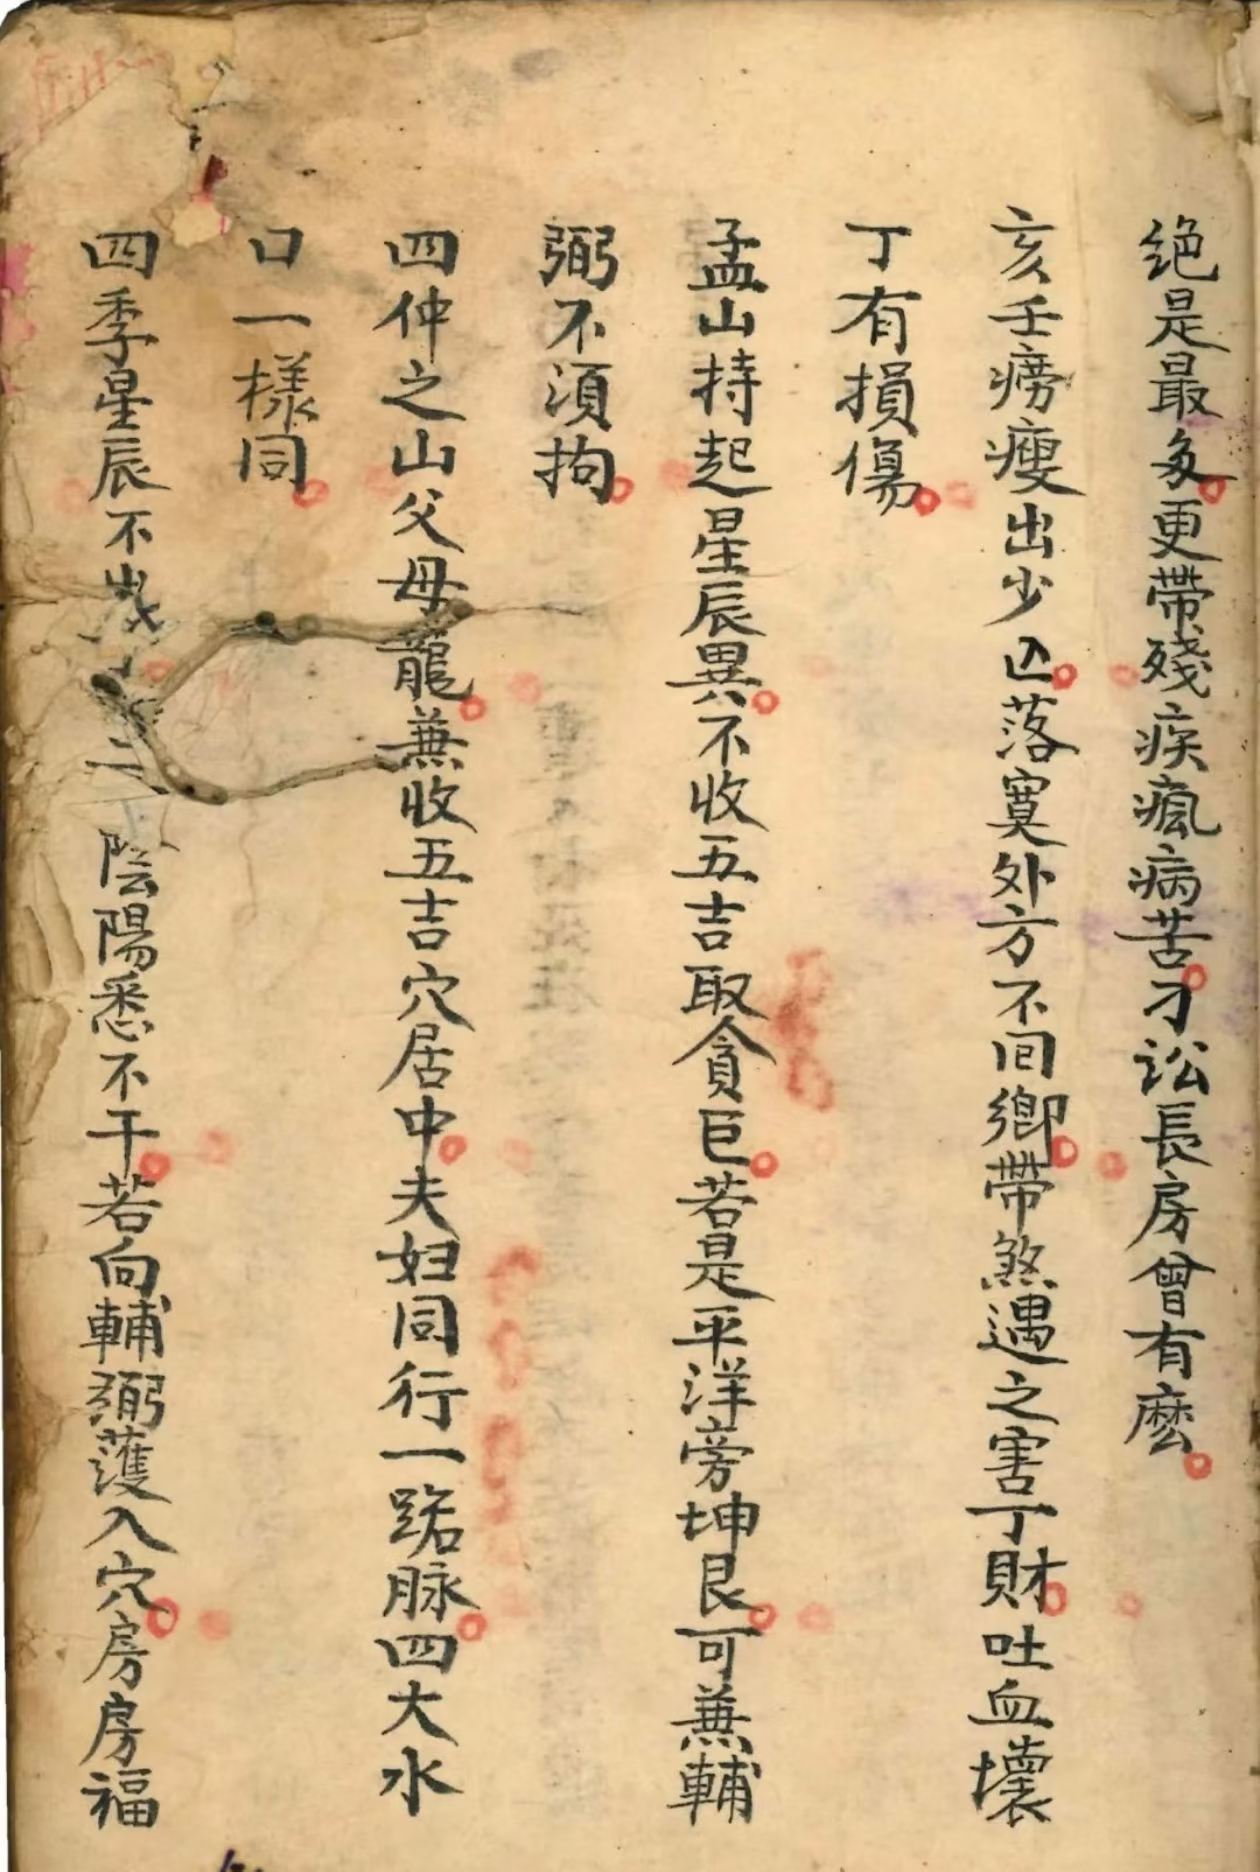 绝是最多更帶殘疾瘋病苦刁訟長房曾有麽
亥壬癆瘦出少亡落寞外方不囘鄉帶煞遇之害丁財吐血壞
丁有損傷
孟山持起星辰異不收五吉取貪巨若是平洋旁坤艮可兼輔
弼不須拘
四仲之山父母龍兼收五吉穴居中夫妇同行一路脉四大水
口一樣同
四季星辰不出二陰陽悉不干若向輔弼蒦入穴房房福